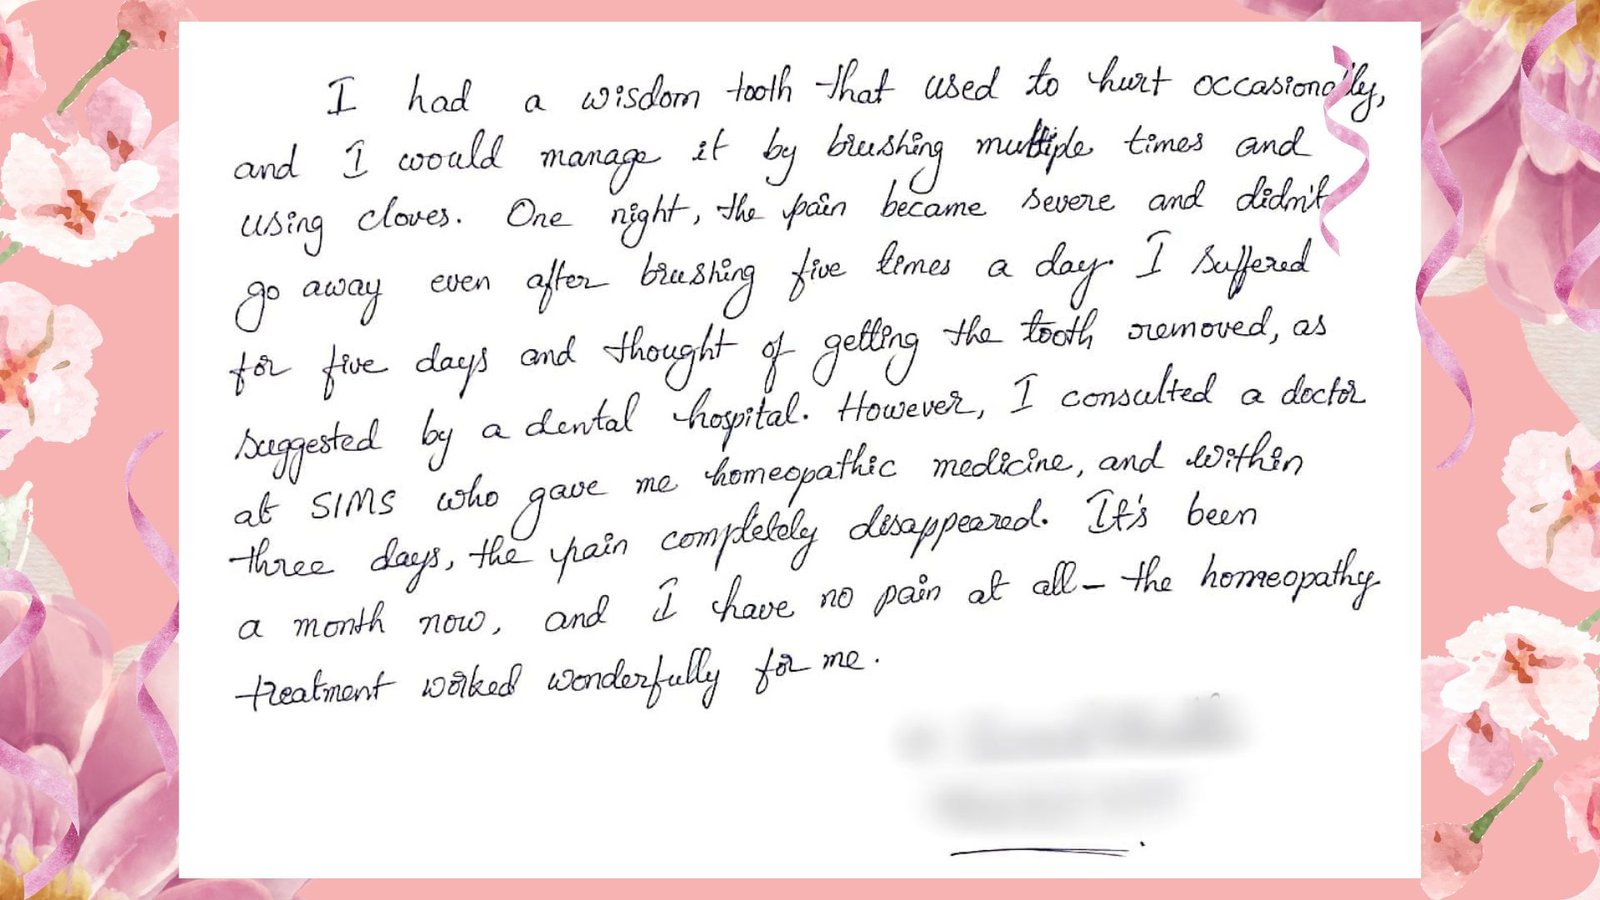 I had a wisdom tooth that used to hurt occasionally,
and I would manage it by brushing multiple times and
using cloves. One night, the pain became severe and didn't
go away even after brushing five times a day. I suffered
for five days and thought of getting the tooth removed, as
suggested by a dental hospital. However, I consulted a doctor
at SIMS who gave me homeopathic medicine, and within
three days, the pain completely disappeared. It's been
a month now, and I have no pain at all - the homeopathy
treatment worked wonderfully for me.